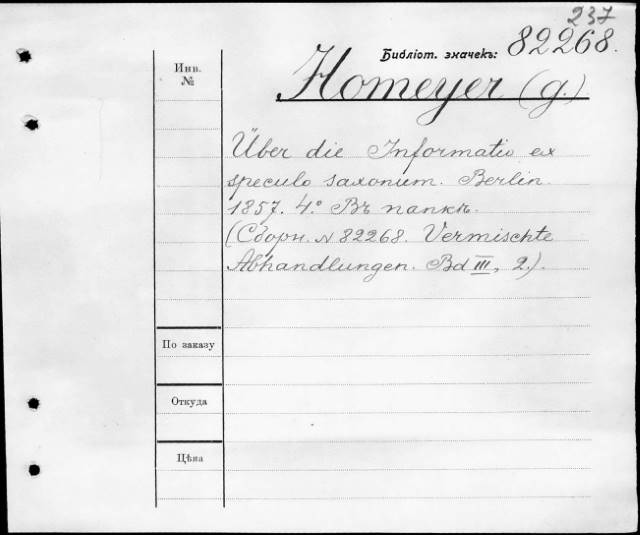 237
Библіот. значекъ: 82268.
Инв.
№
Homeyer (g.)
Über die Informatio ex
speculo saxonum. Berlin.
1857. 4.° Въ папкѣ.
(Сборн. № 82268. Vermischte
Abhandlungen. Bd III, 2.).
По заказу
Откуда
Цѣна